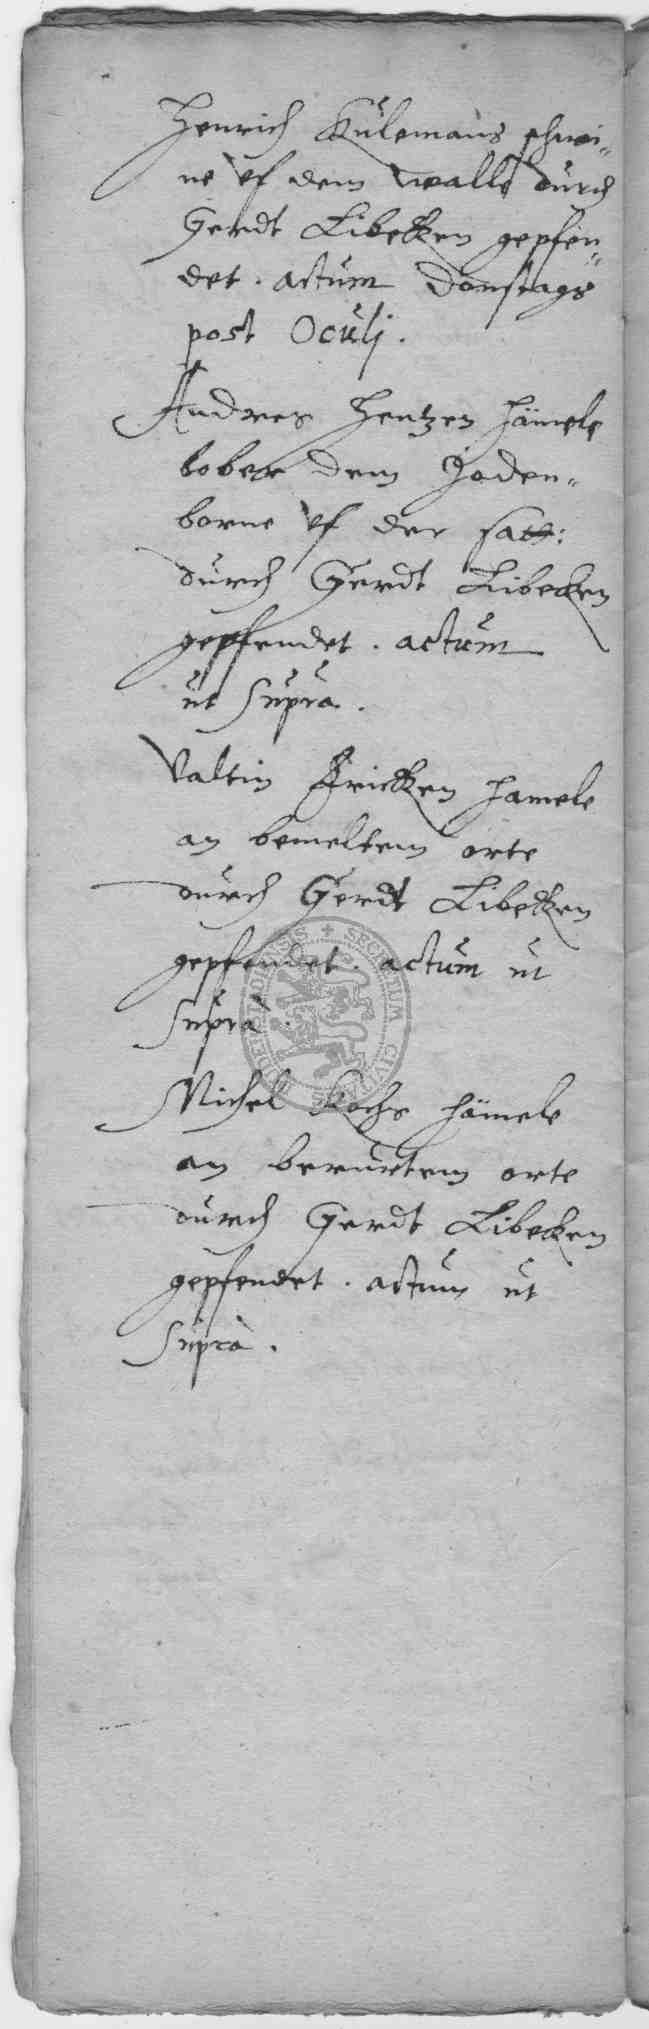 Henrich Külemans schwei=
ne vf dem walle durch
Gerdt Libecken gepfen=
det. actum Donstags
post Oculj.
Andres Hentzen hämele
bober dem Joden=
borne vf der sath:
durch Gerdt Libecken
gepfendet. actum
ut supra.
Valtin Fricken hamele
an bemeltem orte
durch Gerdt Libecken
gepfendet. actum ut
supra.
Michel Kochs hämele
an berurtem orte
durch Gerdt Libecken
gepfendet. actum ut
supra.
SECRETUM CIVITATIS